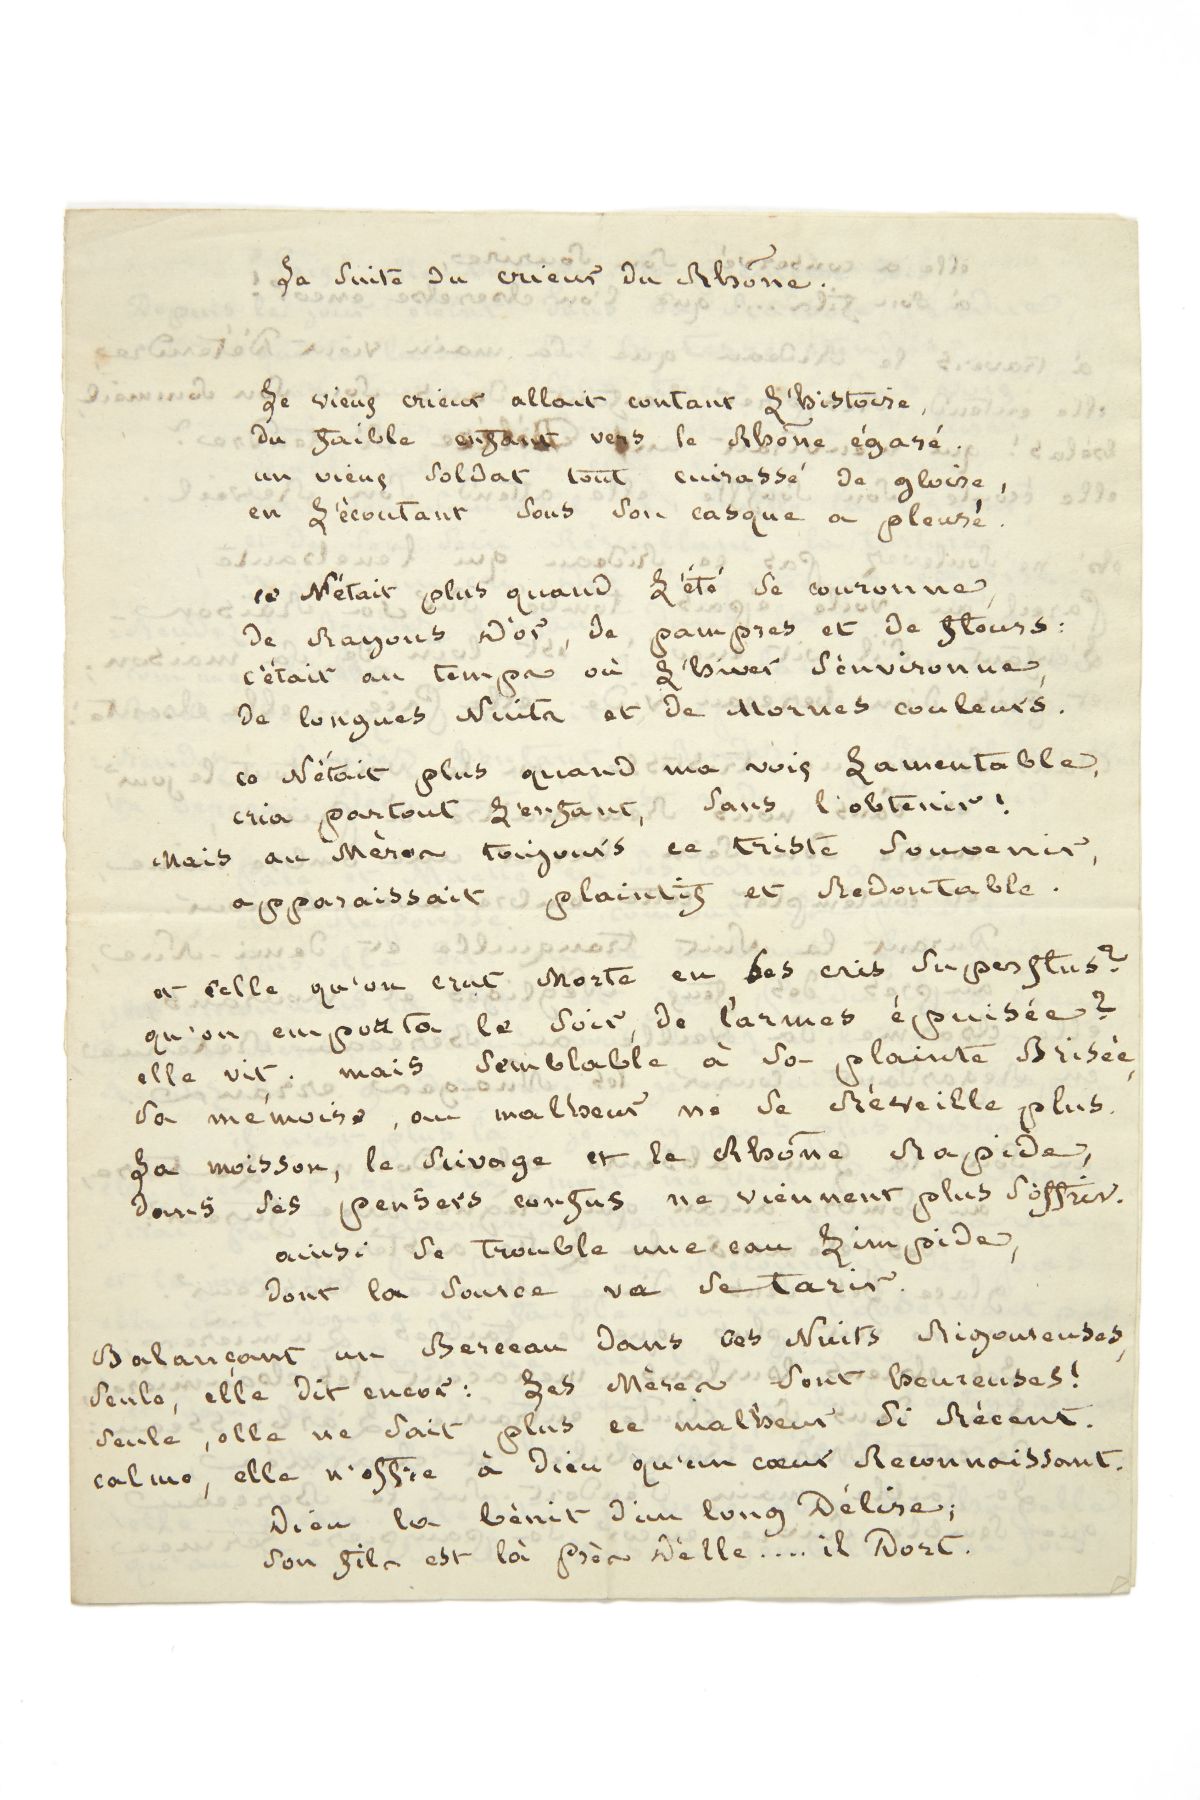 La suite du crieur du Rhône.
Le vieux crieur allait contant L'histoire,
du faible enfant vers le Rhône égaré.
un vieux soldat tout cuirassé de gloire,
en L'écoutant sous son casque a pleuré.
ce N'était plus quand L'été se couronne,
de Rayons D'or, de pampres et de fleurs:
c'était au temps où L'hiver s'environne,
de longues Nuits et de Mornes couleurs.
ce N'était plus quand ma voix Lamentable,
cria partout L'enfant, sans l'obtenir!
Mais au Mères toujours ce triste souvenir,
apparaissait plaintif et Redoutable.
et celle qu'on crut Morte en ses cris superflus?
qu'on emporta le soir, de l'armes épuisée?
elle vit. mais semblable à sa plainte Brisée,
sa mémoire, au malheur ne se Réveille plus.
La moisson, le Rivage et le Rhône Rapide,
dans ses pensers confus ne viennent plus s'offrir.
ainsi se trouble une eau Limpide,
dont la source va se tarir.
Balançant un Berceau dans ces Nuits Rigoureuses,
seule, elle dit encor: Les Mères sont heureuses!
seule, elle ne sait plus ce malheur si Récent.
calme, elle n'offre à Dieu qu'un cœur Reconnaissant.
Dieu la bénit d'un long Délire;
son fils est là près D'elle.... il Dort.